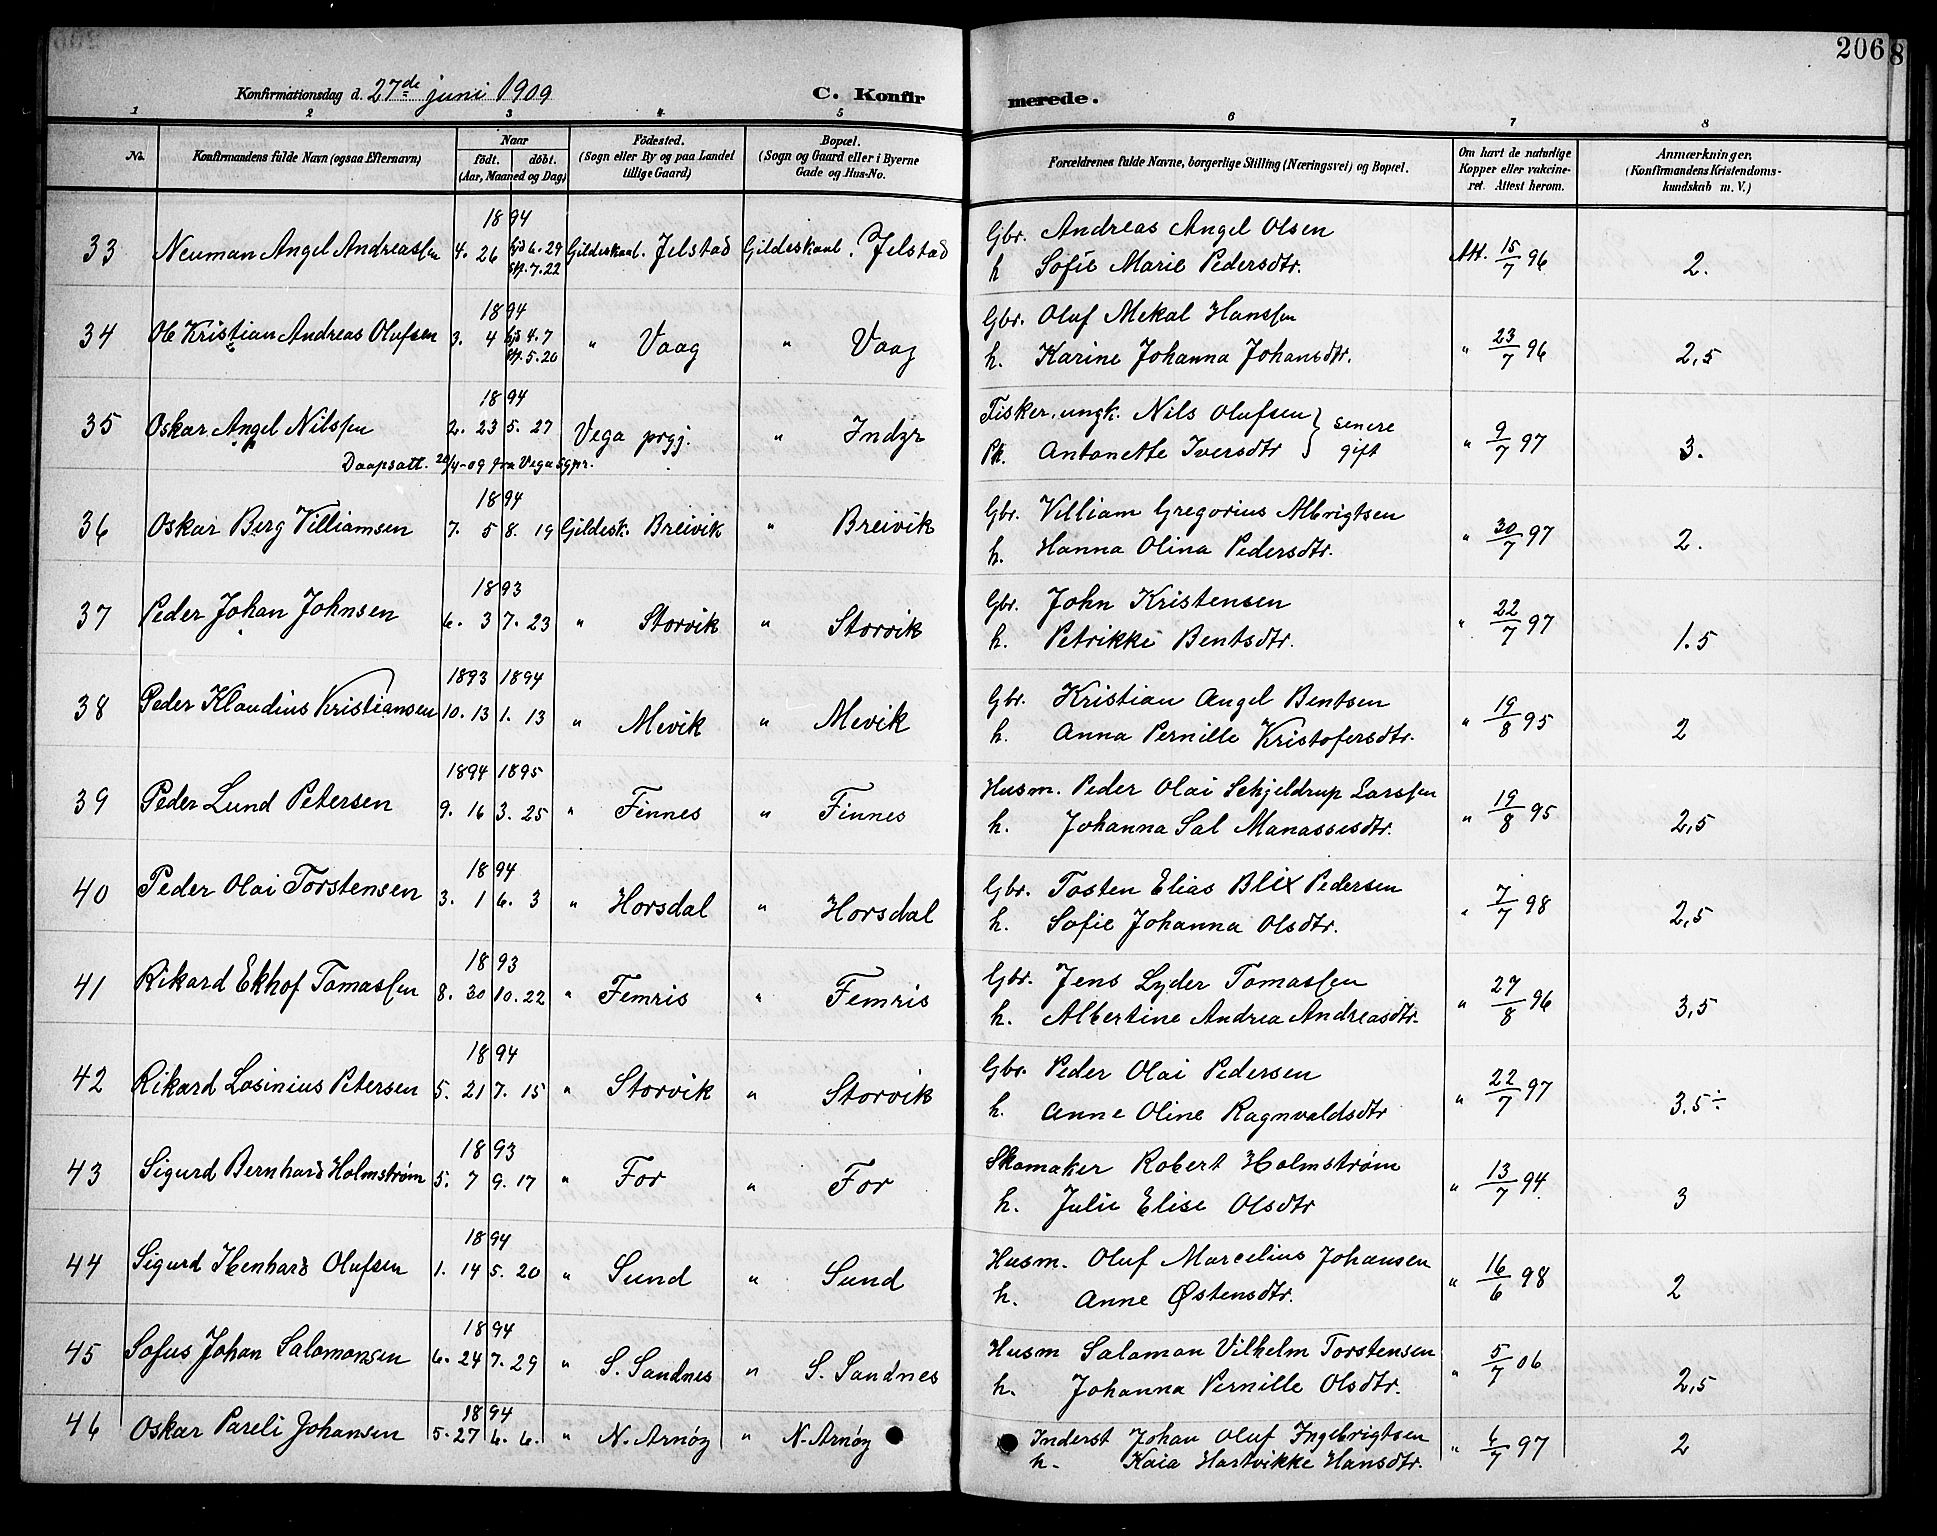 206
8
Konfirmationsdag d. 27de juni 1909
C. Konfirmerede.
1 2 3 4 5 6 7 8
No. Konfirmandens fulde Navn (ogsaa Efternavn) Naar født. døbt. (Aar, Maaned og Dag) Fødested. (Sogn eller By og paa Landet tillige Gaard) Bopæl. (Sogn og Gaard eller i Byerne Gade og Hus-No. Forældrenes fulde Navne, borgerlige Stilling (Næringsvei) og Bopæl. Om havt de naturlige Kopper eller vakcineret. Attest herom. Anmærkninger. (Konfirmandens Kristendomskundskab m. V.)
1894
33 Neuman Angel Andreassen 4. 26 hjd 6. 29 stf. 7. 22 Gildeskaal. Jelstad Gildeskaal. Jelstad Gbr. Andreas Angel Olsen Att. 15/7 96 2.
h Sofie Marie Pedersdtr.
1894
34 Ole Kristian Andreas Olufsen 3. 4 hjd 4. 7 stf. 5. 20 " Vaag " Vaag Gbr. Oluf Mekal Hanssen " 23/7 96 2,5
h. Karine Johanna Johansdtr.
1894
35 Oskar Angel Nilssen 2. 23 5. 27 Vega prgj. " Indyr Fisker, ungk. Nils Olufsen } senere gift " 9/7 97 3.
Pk. Antonette Iversdtr
Daapsatt. 20/4-09 fra Vega sgpr.
1894
36 Oskar Berg Villiamsen 7. 5 8. 19 Gildesk. Breivik " Breivik Gbr. Villiam Gregorius Albrigtsen " 30/7 97 2.
h. Hanna Olina Pedersdtr.
1893
37 Peder Johan Johnsen 6. 3 7. 23 " Storvik " Storvik Gbr. John Kristensen " 22/7 97 1.5
h. Petrikke Bentsdtr.
1893 1894
38 Peder Klaudius Kristiansen 10. 13 1. 13 " Mevik " Mevik Gbr. Kristian Angel Bentsen " 19/8 95 2
h. Anna Pernille Kristofersdtr.
1894 1895
39 Peder Lund Petersen 9. 16 3. 25 " Finnes " Finnes Husm. Peder Olai Schjeldrup Larssen " 19/8 95 2,5
h. Johanna Sal Manassesdtr.
1894
40 Peder Olai Torstensen 3. 1 6. 3 " Horsdal " Horsdal Gbr. Tosten Elias Blix Pedersen " 7/7 98 2,5
h. Sofie Johanna Olsdtr.
1893
41 Rikard Ekhof Tomassen 8. 30 10. 22 " Femris " Femris Gbr. Jens Lyder Tomassen " 27/8 96 3,5
h. Albertine Andrea Andreasdtr.
1894
42 Rikard Losinius Petersen 5. 21 7. 15 " Storvik " Storvik Gbr. Peder Olai Pedersen " 22/7 97 3.5÷
h. Anne Oline Ragnvaldsdtr
1893
43 Sigurd Bernhard Holmstrøm 5. 7 9. 17 " For " For Skomaker Robert Holmstrøm " 13/7 94. 3
h. Julie Elise Olsdtr
1894
44 Sigurd Ibenhard Olufsen 1. 14 5. 20 " Sund " Sund Husm. Oluf Marcelius Johansen " 16/6 98 2
h. Anne Østensdtr.
1894
45 Sofus Johan Salomonsen 6. 24 7. 29 " S. Sandnes " S. Sandnes Husm Salamon Vilhelm Torstensen " 5/7 06 2,5
h. Johanna Pernille Olsdtr.
1894
46 Oskar Pareli Johansen 5. 27 6. 6. " N. Arnøy " N. Arnøy Inderst Johan Oluf Ingebrigtsen " 6/7 97 2
h. Kaia Hartvikke Hansdtr.